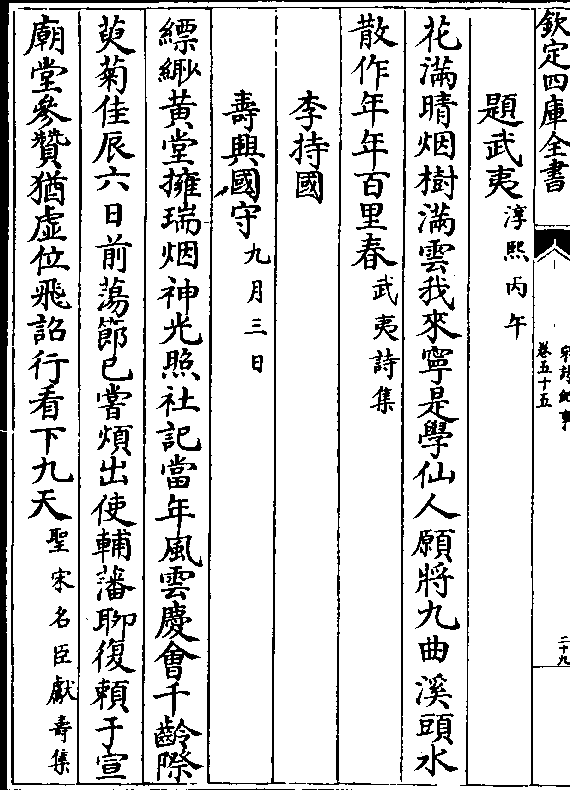 欽定四庫全書
宋詩紀事
卷五十五
二十九
題武夷 淳熙丙午
花滿晴烟樹滿雲我來寧是學仙人願將九曲溪頭水
散作年年百里春 武夷詩集
李持國
壽興國守 九月三日
縹緲黃堂擁瑞烟神光照社記當年風雲慶會千齡際
萸菊佳辰六日前蕩節已嘗煩出使輔藩聊復賴于宣
廟堂參贊猶虛位飛詔行看下九天 聖宋名臣獻壽集